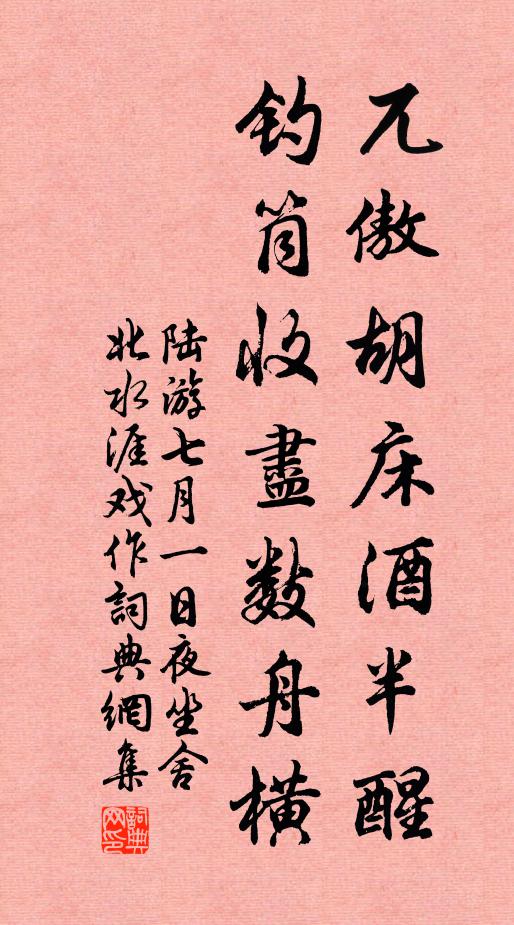 兀傲胡床酒半醒
钓筒收盡数舟橫
陆游七月一日夜坐舍
北水涯戏作詞典網集
詞典
网印